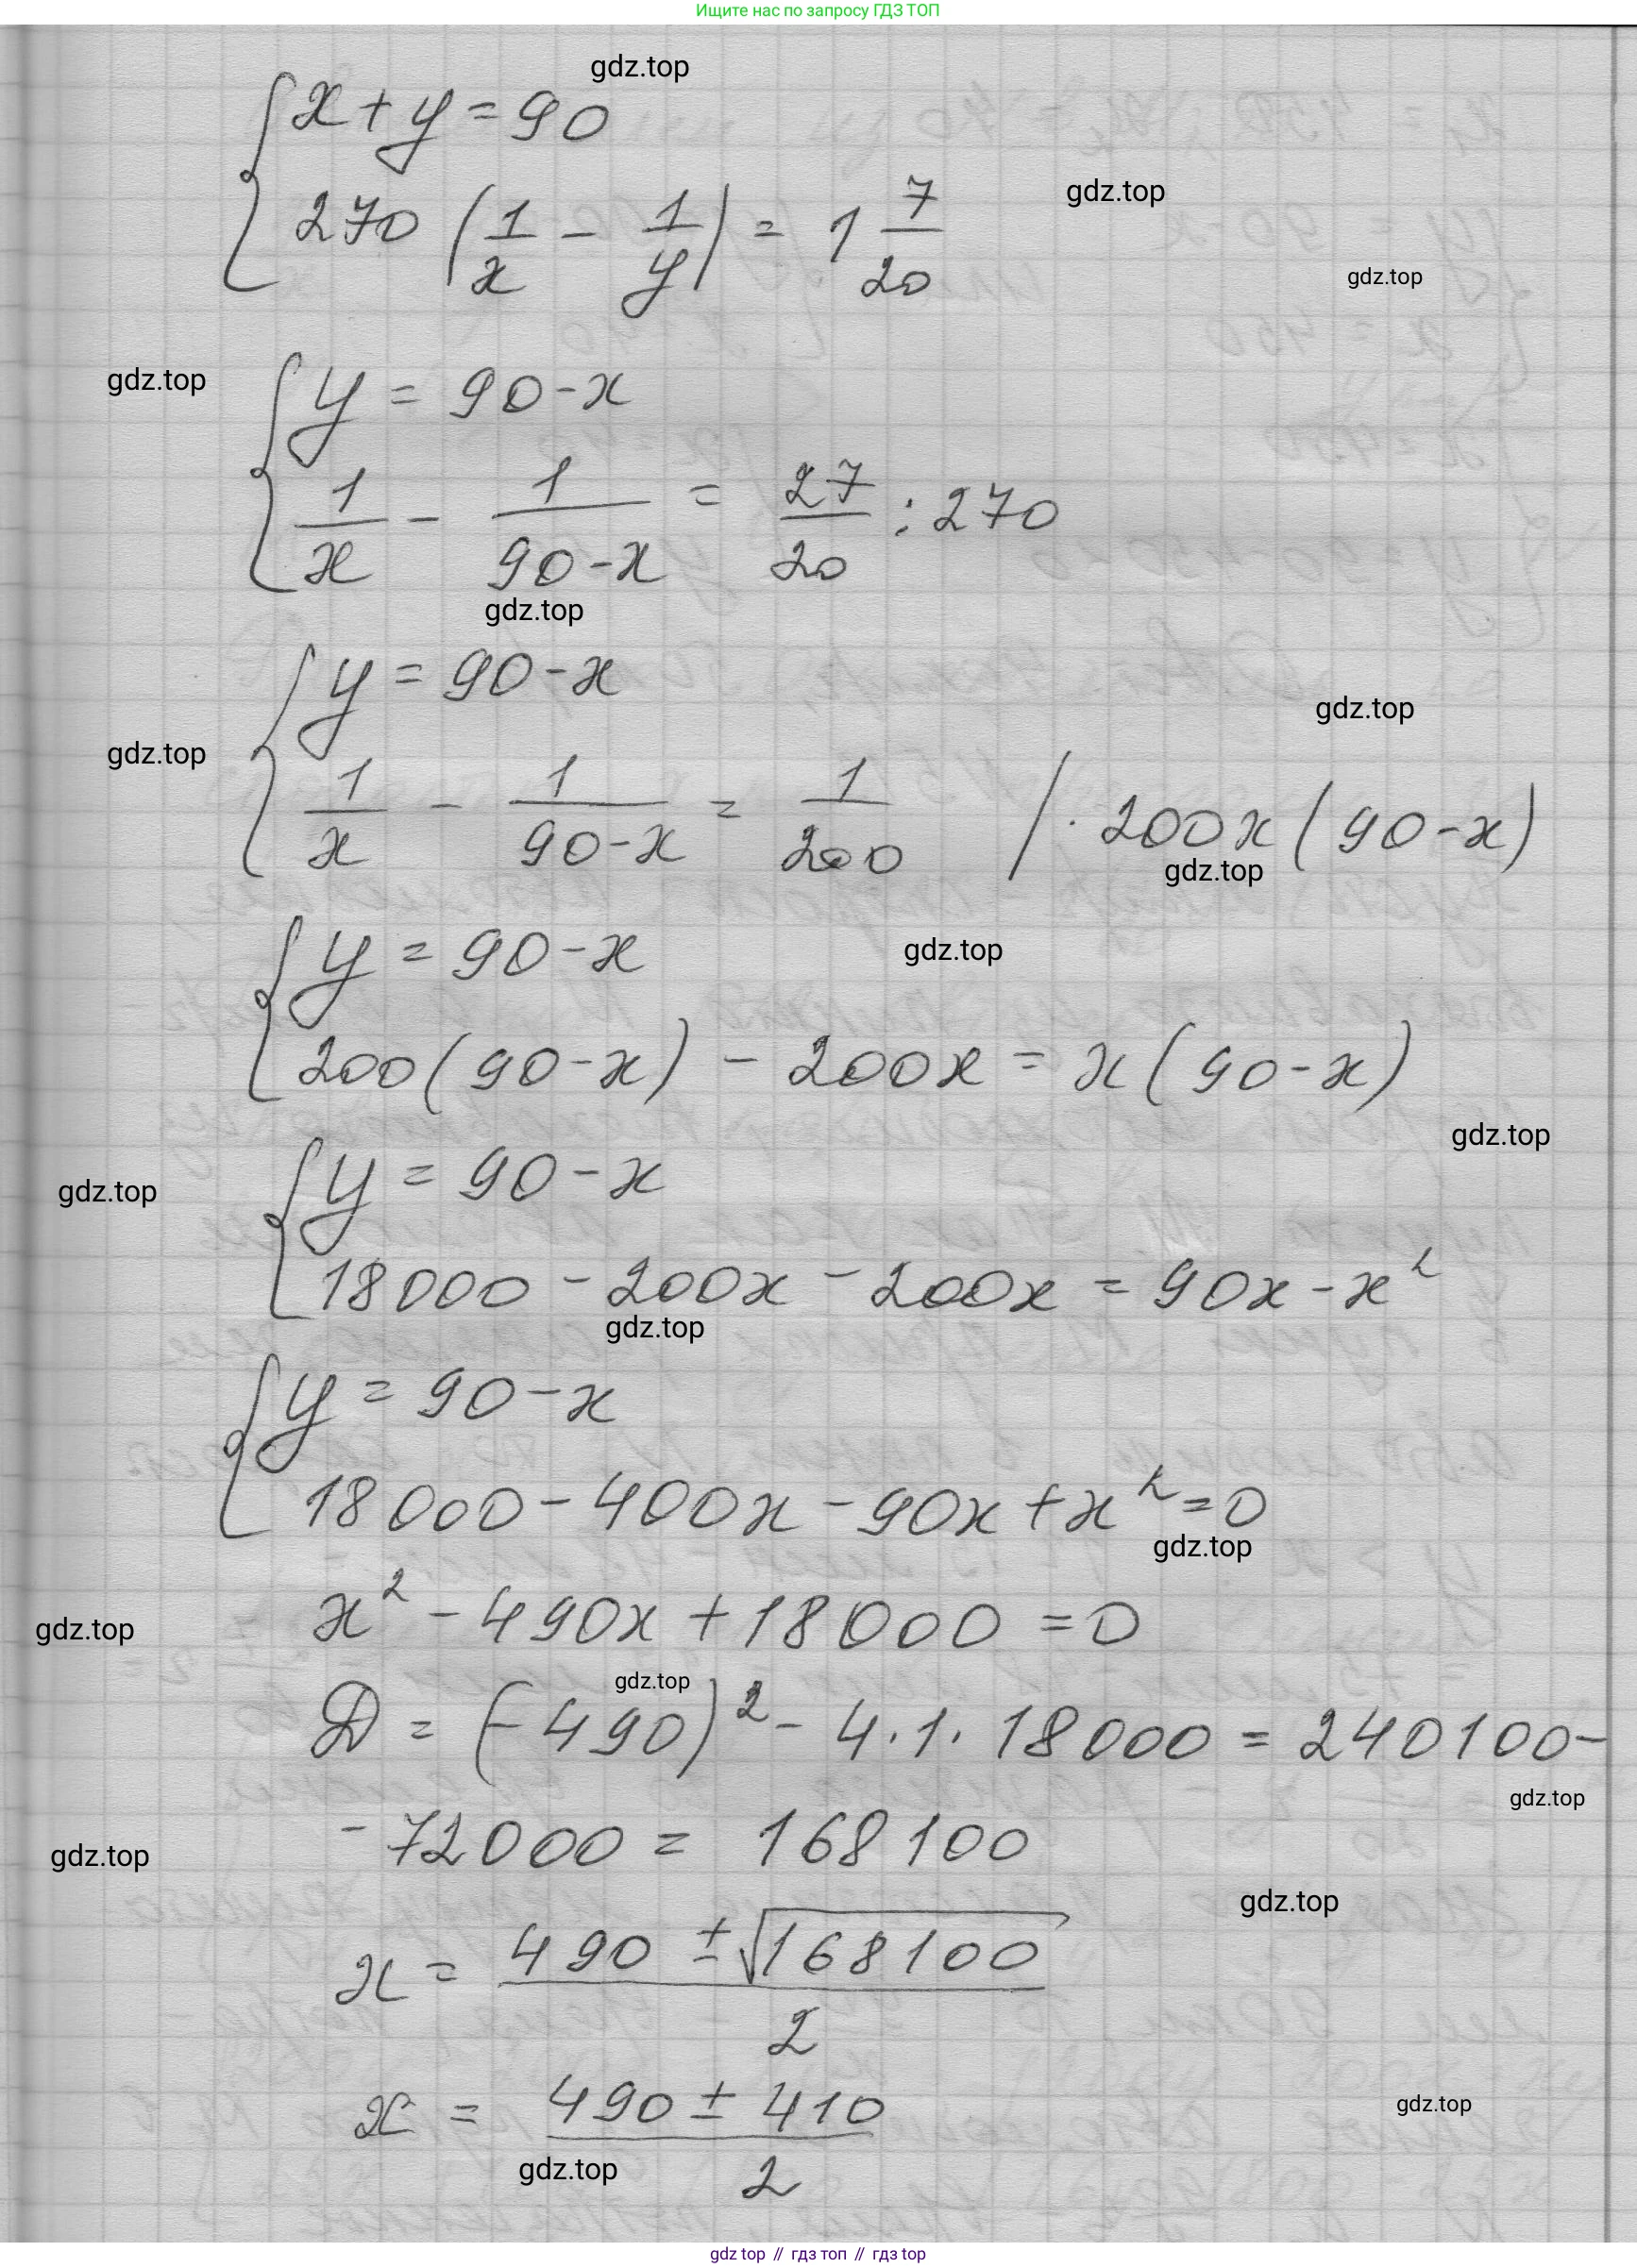 Ищите нас по запросу ГДЗ ТОП
gdz.top
{ x + y = 90
270 (1/x - 1/y) = 1 7/20
gdz.top
gdz.top
gdz.top
{ y = 90 - x
1/x - 1/(90 - x) = 27/20 : 270
gdz.top
{ y = 90 - x
gdz.top
gdz.top
1/x - 1/(90 - x) = 1/200 / · 200x (90 - x)
gdz.top
{ y = 90 - x
gdz.top
200 (90 - x) - 200x = x (90 - x)
gdz.top
{ y = 90 - x
gdz.top
18000 - 200x - 200x = 90x - x²
gdz.top
{ y = 90 - x
18000 - 400x - 90x + x² = 0
gdz.top
x² - 490x + 18000 = 0
gdz.top
gdz.top
D = (-490)² - 4 · 1 · 18000 = 240100 -
gdz.top
- 72000 = 168100
gdz.top
gdz.top
x = (490 ± √168100)/2
x = (490 ± 410)/2
gdz.top
gdz.top
gdz top // гдз топ // гдз top